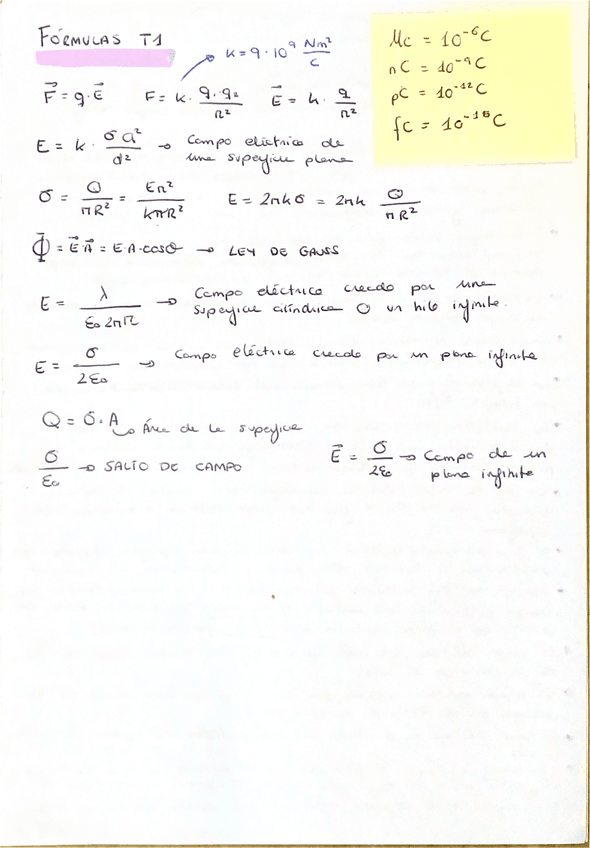 FÓRMULAS T1
k = 9·10⁹ Nm²/C
Mc = 10⁻⁶C
nC = 10⁻⁹C
pC = 10⁻¹²C
fC = 10⁻¹⁵C
F⃗ = q·E⃗ F = k· q·q₂/r² E⃗ = k· q/r²
E = k· σa²/d² → Campo eléctrico de
una superficie plana
σ = Q/πR² = Er²/kπR² E = 2πkσ = 2πk Q/πR²
Φ⃗ = E⃗·A⃗ = E·A·cosθ → LEY DE GAUSS
E = λ/ε₀2πR → Campo eléctrico creado por una
superficie cilíndrica O un hilo infinito.
E = σ/2ε₀ → Campo eléctrico creado por un plano infinito
Q = σ·A → Área de la superficie
σ/ε₀ → SALTO DE CAMPO
E⃗ = σ/2ε₀ → Campo de un
plano infinito